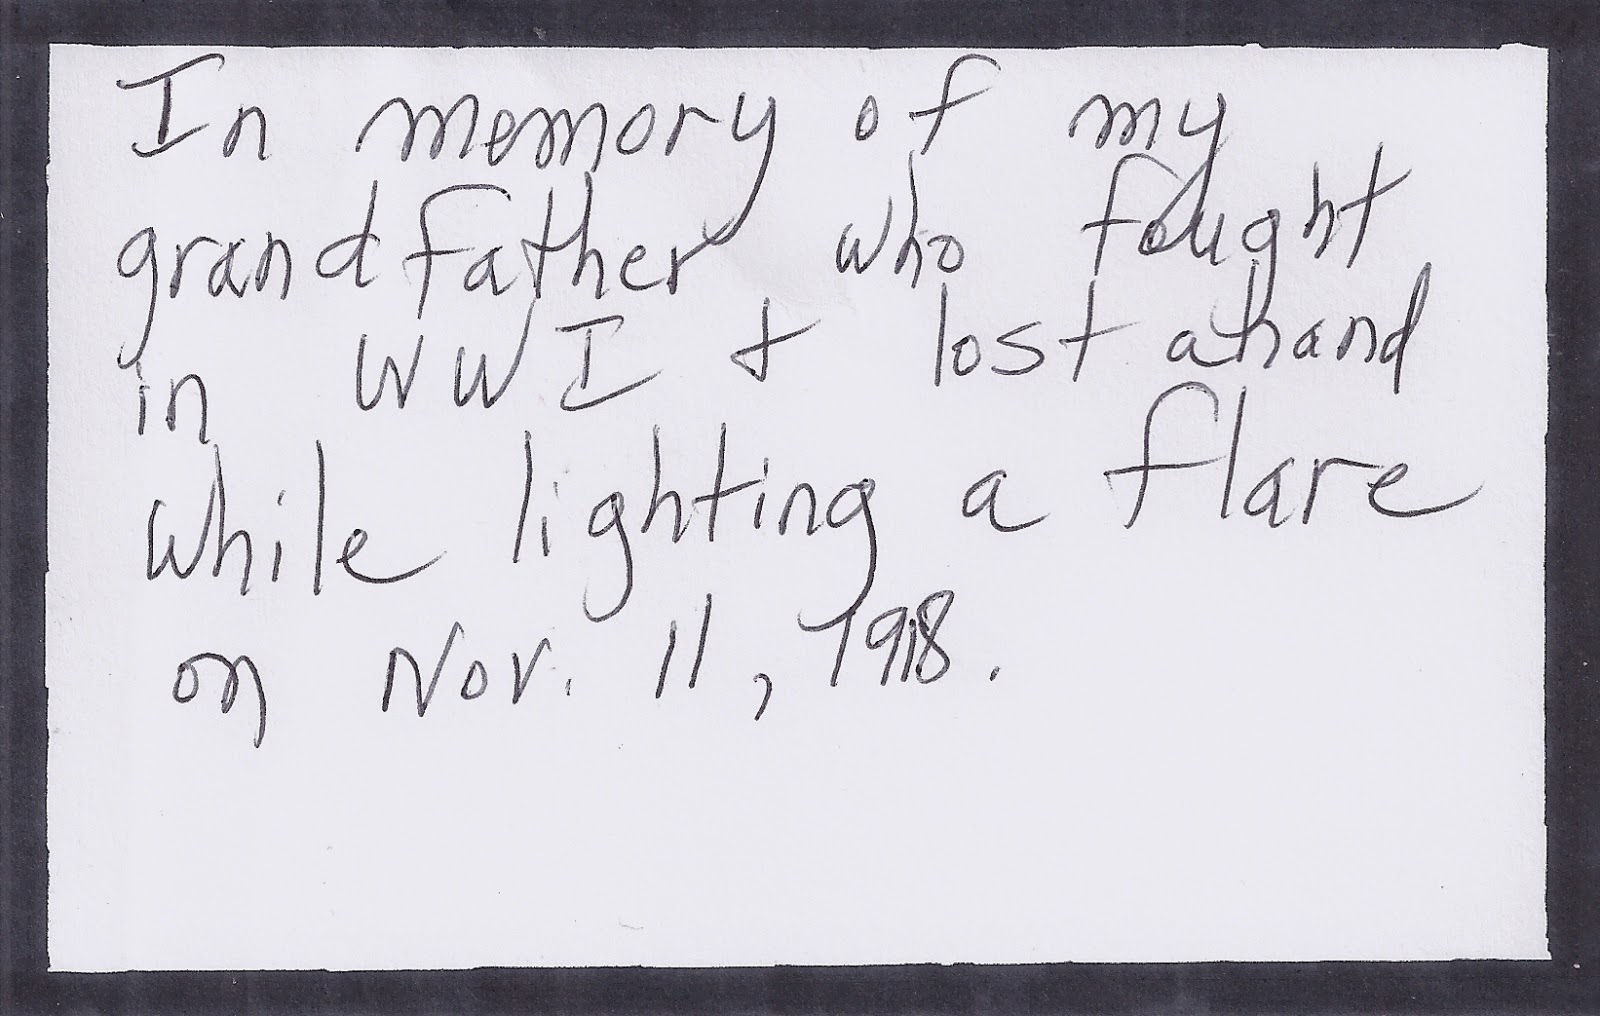 In memory of my
grandfather who fought
in WWI + lost a hand
while lighting a flare
on Nov. 11, 1918.